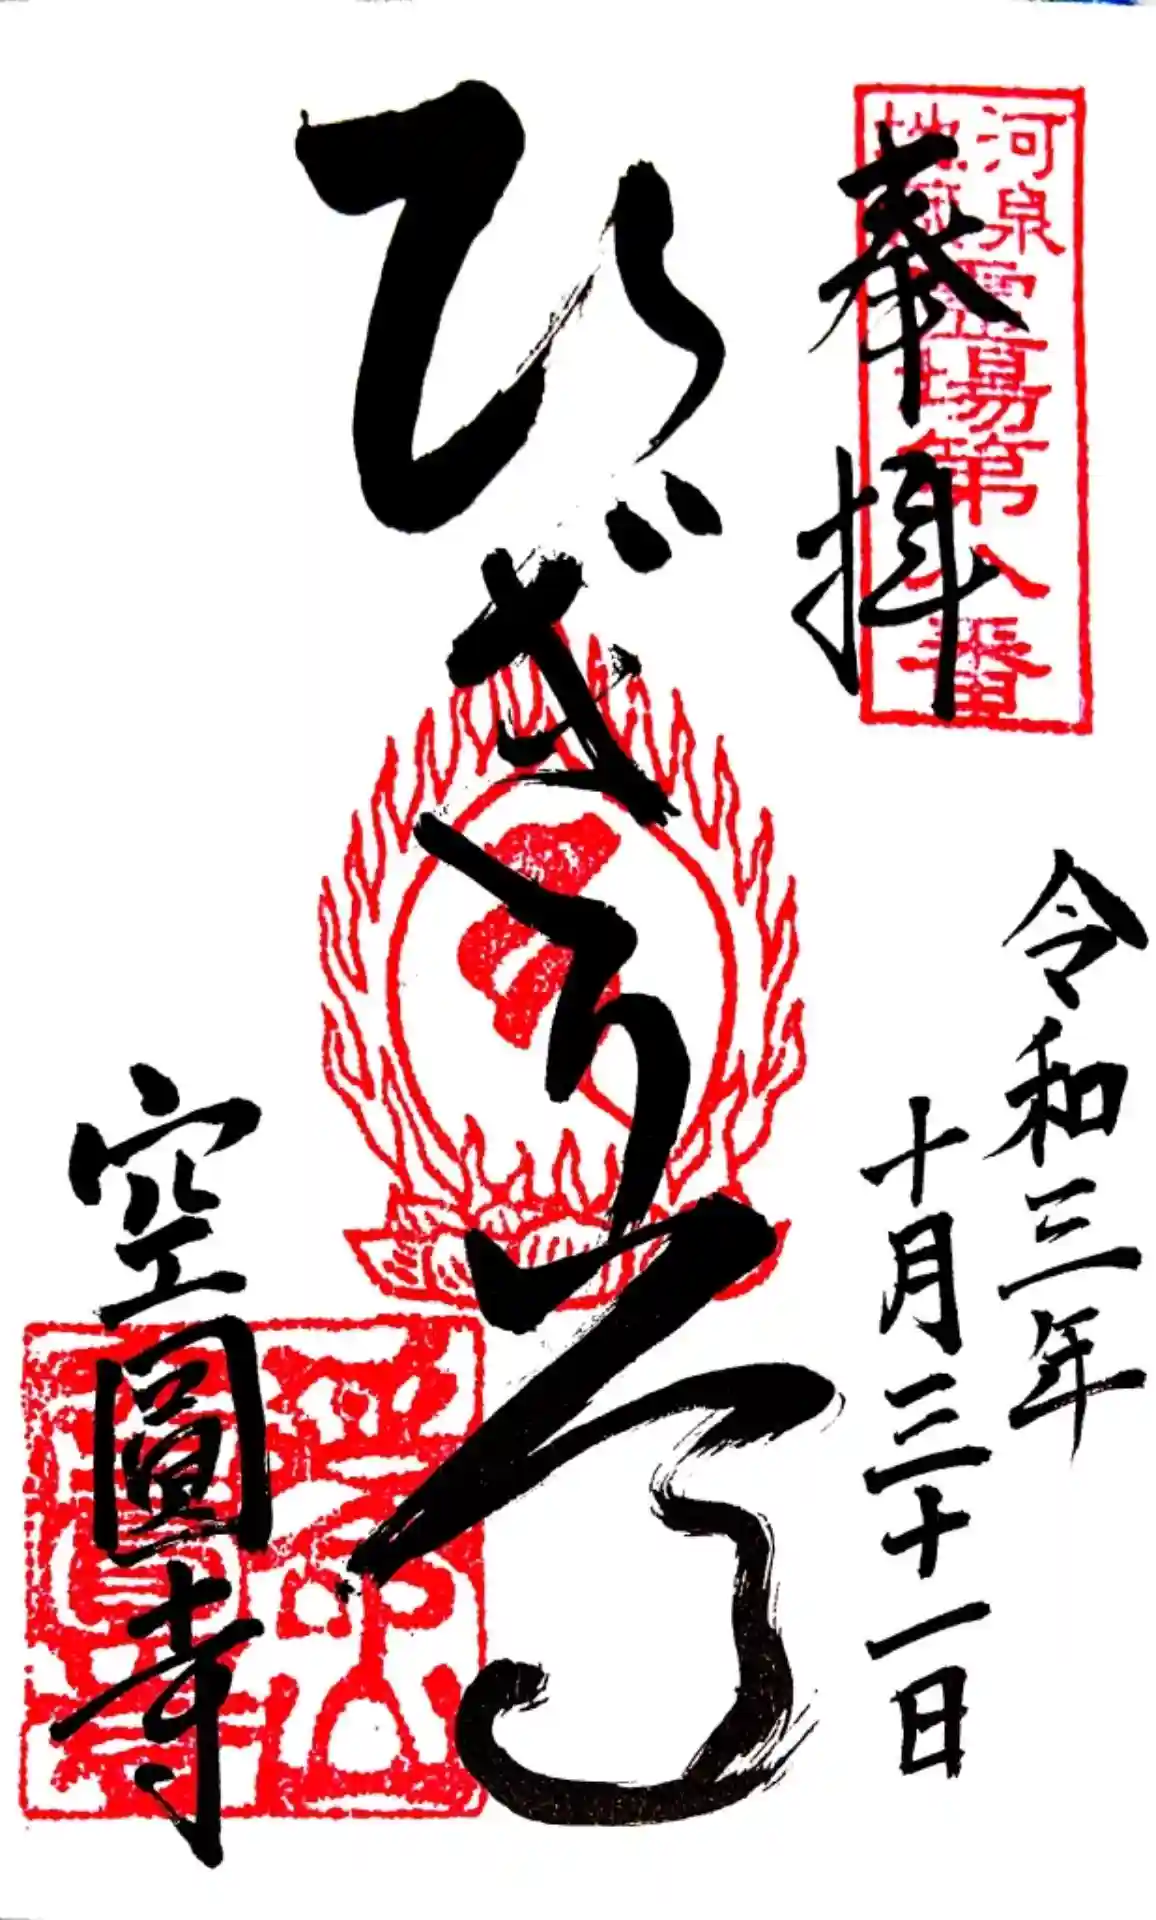 河泉地蔵霊場第八番
奉拝
令和三年
十月三十一日
ひざ
空圓寺